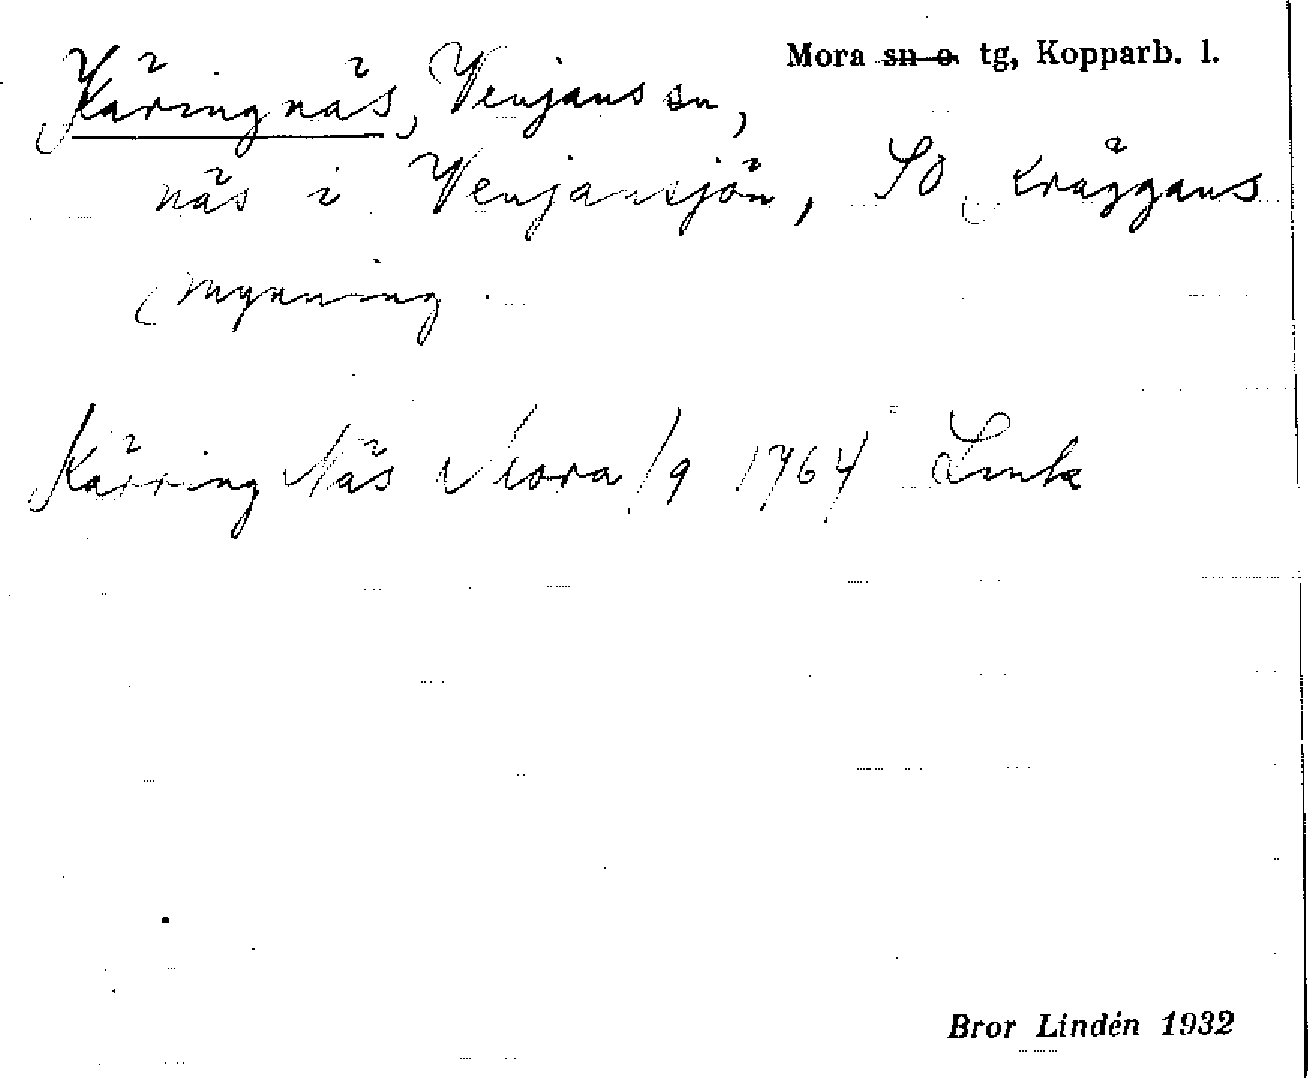 Mora sn o. tg, Kopparb. l.
Käringnäs, Venjans sn,
näs i Venjansjön, SO Kråggans
mynning.
Kärring Näs Mora /9 1764 Lmk
Bror Lindén 1932